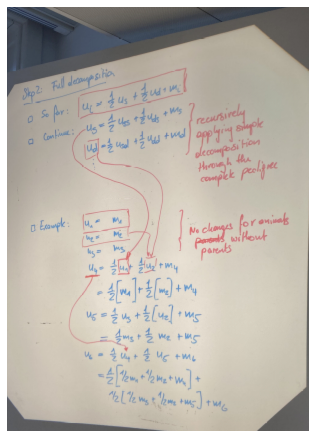 Step 2: Full decomposition
□ So far: u_i = 1/2 u_s + 1/2 u_d + m_i
□ Continue: u_s = 1/2 u_ss + 1/2 u_ds + m_s
u_d = 1/2 u_sd + 1/2 u_dd + m_d
recursively
applying simple
decomposition
through the
complete pedigree
□ Example: u_1 = m_1
u_2 = m_2
u_3 = m_3
No changes for animals
parents without
parents
u_4 = 1/2 u_1 + 1/2 u_2 + m_4
= 1/2 [m_1] + 1/2 [m_2] + m_4
u_5 = 1/2 u_3 + 1/2 [u_2] + m_5
= 1/2 m_3 + 1/2 m_2 + m_5
u_6 = 1/2 u_4 + 1/2 u_5 + m_6
= 1/2 [1/2 m_1 + 1/2 m_2 + m_4] +
1/2 [1/2 m_3 + 1/2 m_2 + m_5] + m_6